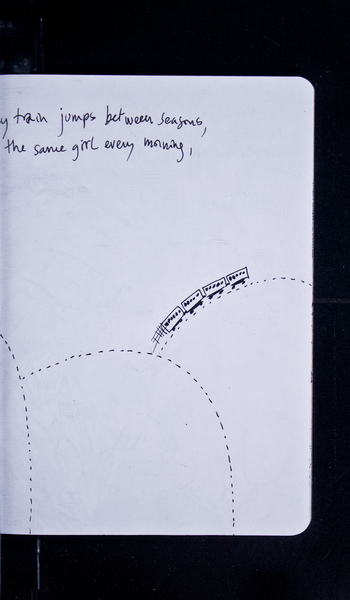 y train jumps between seasons,
the same girl every morning,